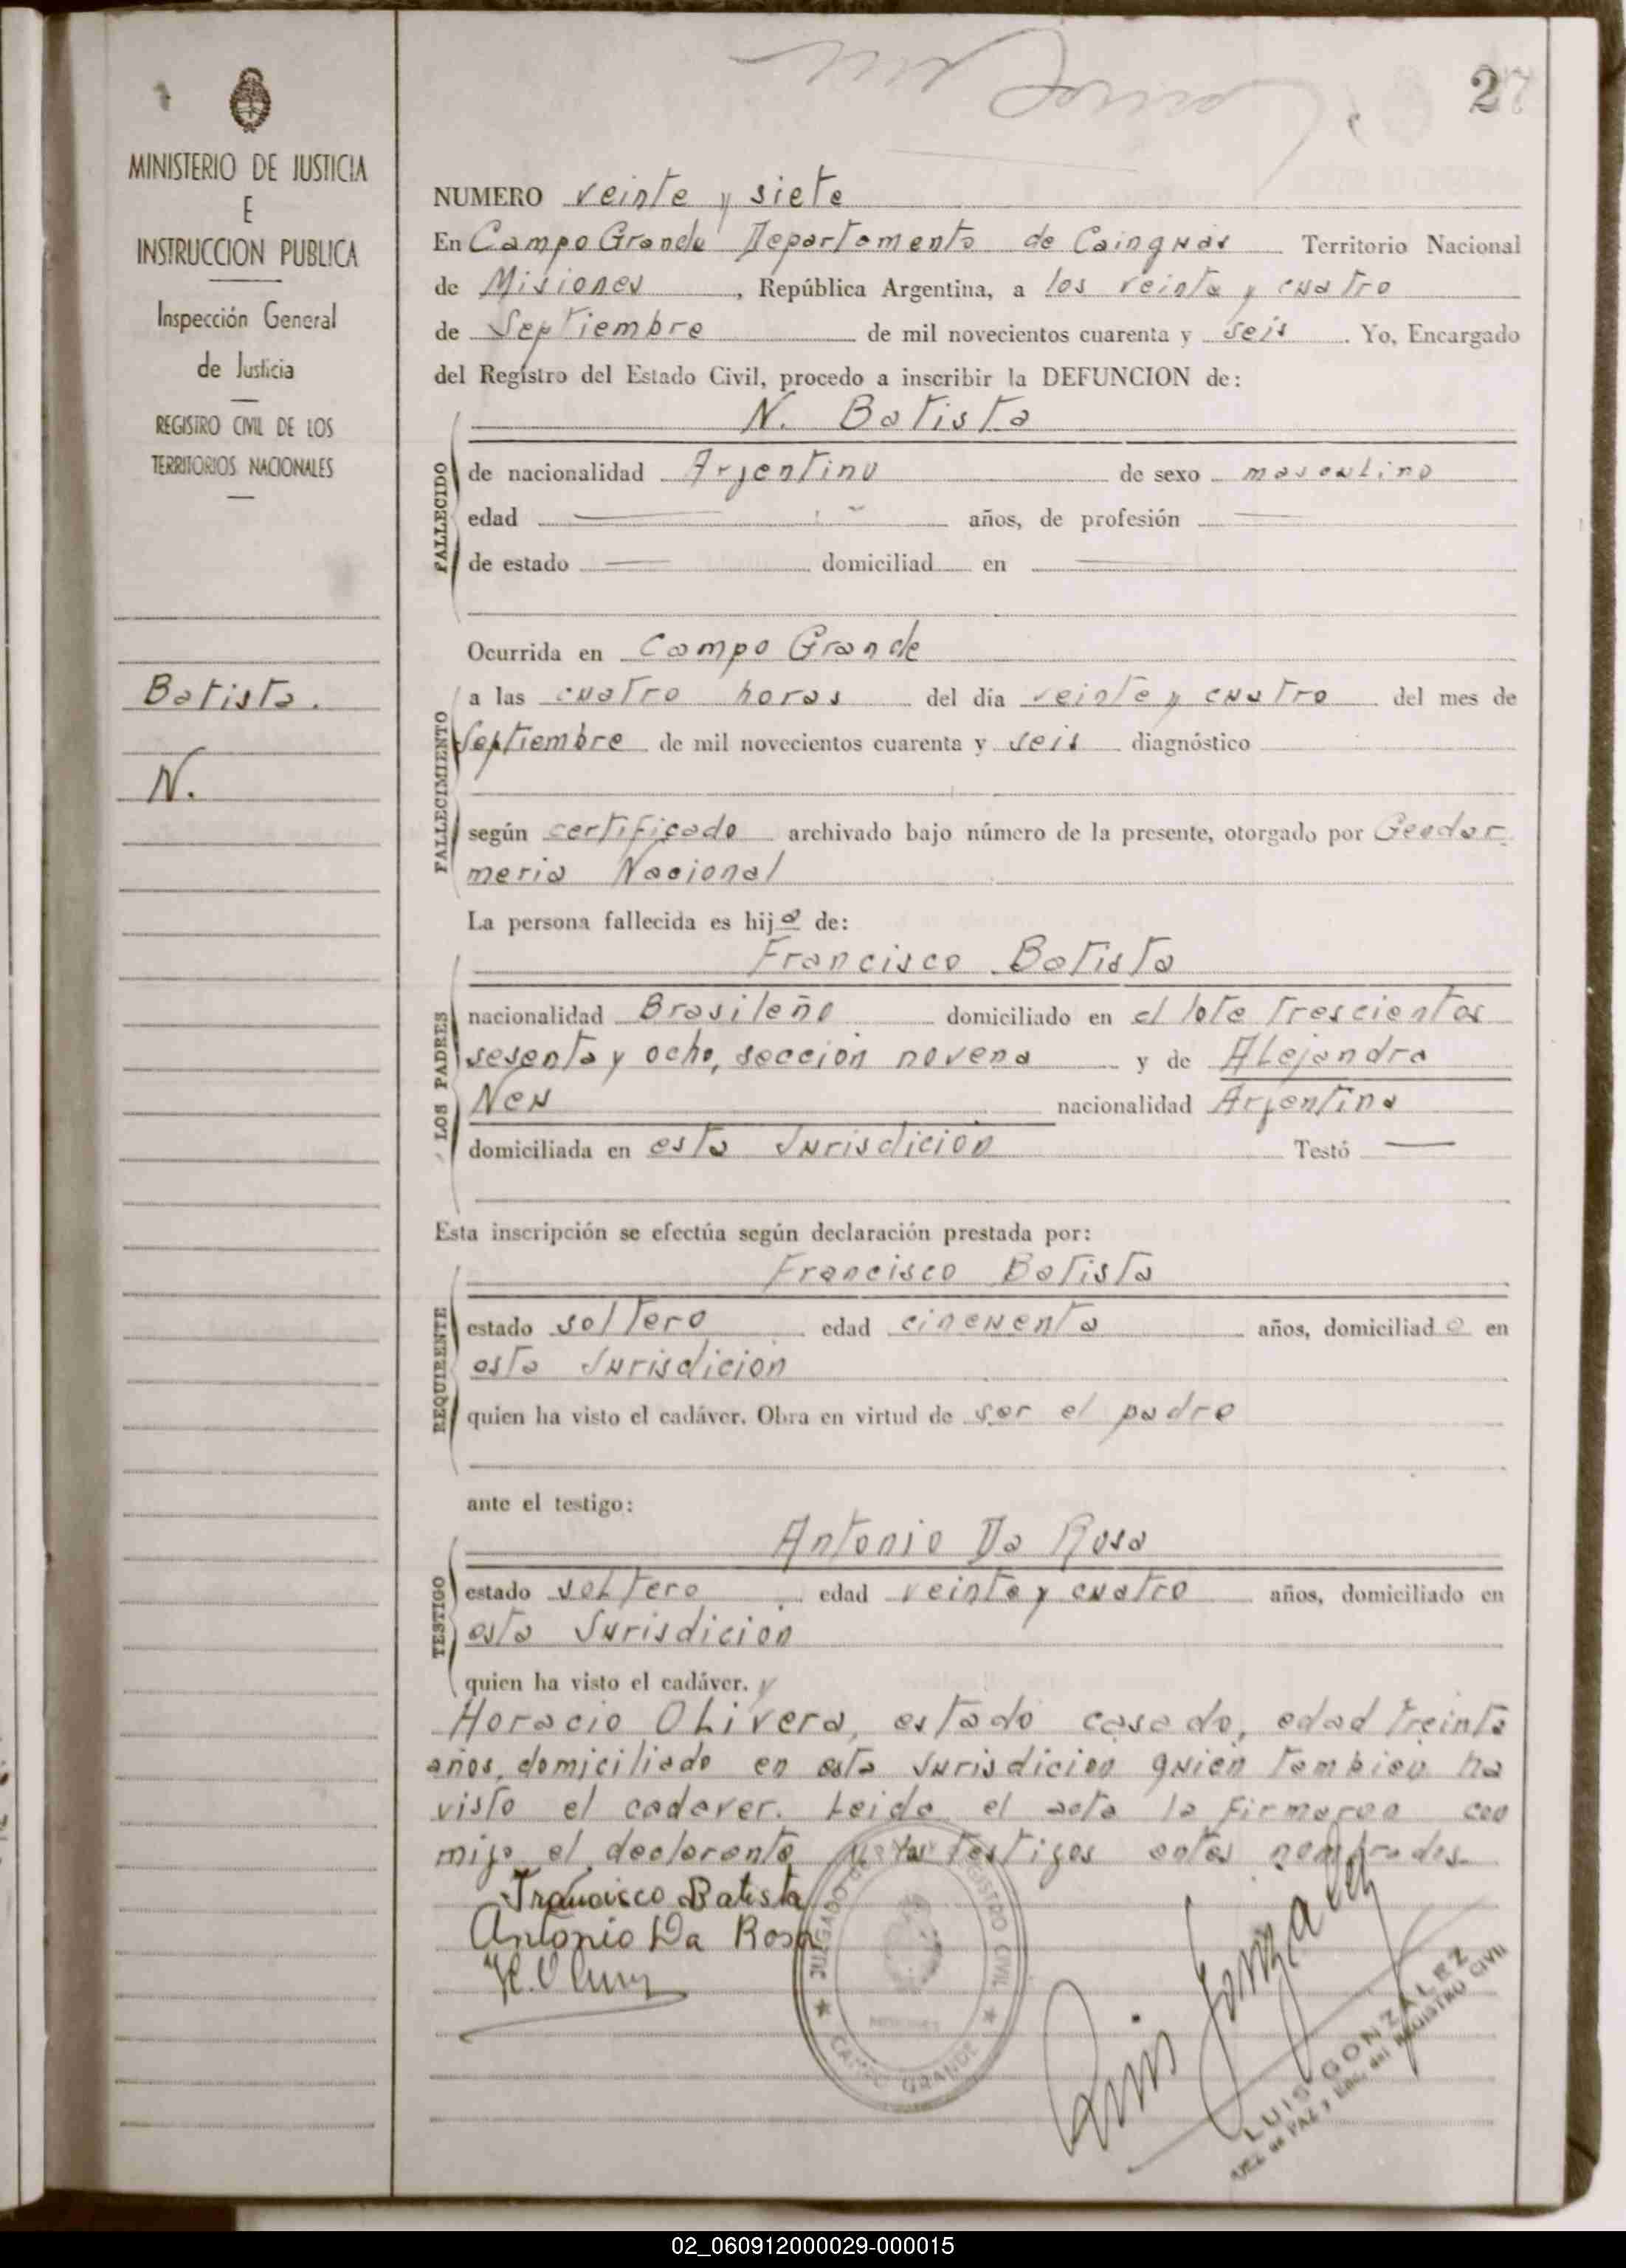 MINISTERIO DE JUSTICIA
E
INSTRUCCION PUBLICA
Inspección General
de Justicia
REGISTRO CIVIL DE LOS
TERRITORIOS NACIONALES
Batista.
N.
2
NUMERO veinte y siete
En Campo Grande Departamento de Cainguás Territorio Nacional
de Misiones, República Argentina, a los veinte y cuatro
de Septiembre de mil novecientos cuarenta y seis. Yo, Encargado
del Registro del Estado Civil, procedo a inscribir la DEFUNCION de:
FALLECIDO
N. Batista
de nacionalidad Argentino de sexo masculino
edad — años, de profesión —
de estado — domiciliad en —
Ocurrida en Campo Grande
FALLECIMIENTO
a las cuatro horas del día veinte y cuatro del mes de
Septiembre de mil novecientos cuarenta y seis diagnóstico
según certificado archivado bajo número de la presente, otorgado por Gendar-
meria Nacional
La persona fallecida es hijo de:
LOS PADRES
Francisco Batista
nacionalidad Brasileño domiciliado en el lote trescientos
sesenta y ocho, sección novena y de Alejandra
Neu nacionalidad Argentina
domiciliada en esta Jurisdición Testó —
Esta inscripción se efectúa según declaración prestada por:
REQUIRENTE
Francisco Batista
estado soltero edad cincuenta años, domiciliado en
esta Jurisdición
quien ha visto el cadáver. Obra en virtud de ser el padre
ante el testigo:
TESTIGO
Antonio Da Rosa
estado soltero edad veinte y cuatro años, domiciliado en
esta Jurisdición
quien ha visto el cadáver. y
Horacio Olivera, estado casado, edad treinta
años, domiciliado en esta Jurisdicion quien tambien ha
visto el cadaver. Leida el acta la firmaron con
migo el declarante y los testigos antes nombrados.
Francisco Batista
Antonio Da Rosa
JUZGADO DE PAZ Y REGISTRO CIVIL
MISIONES
CAMPO GRANDE
Luis Gonzalez
LUIS GONZALEZ
JUEZ de PAZ y Enc. del REGISTRO CIVIL
02_060912000029-000015